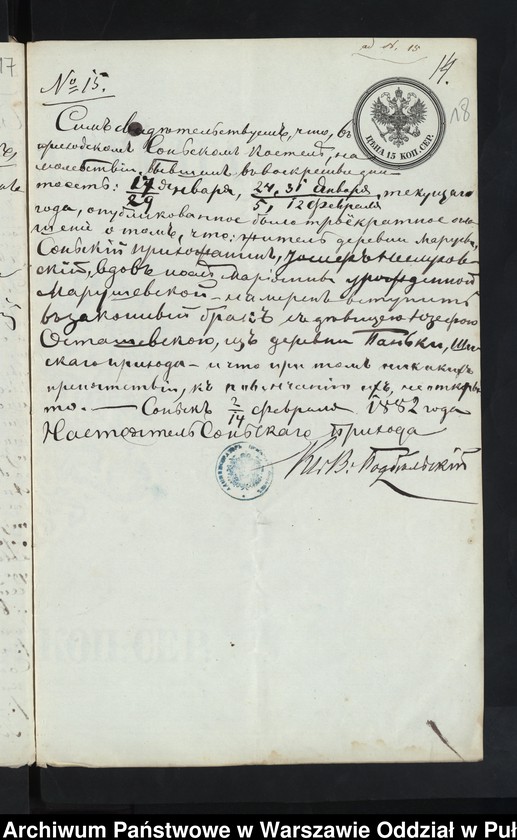 ad N. 15
14.
18
17
№ 15.
ЦѢНА 15 КОП. СЕР.
Симъ свидѣтельствуемъ, что, въ
приходскомъ Сонбскомъ Костелѣ, на
молебствіи, бывшимъ въ воскресные дни
то есть: 17/29 Января, 24, 31 Января / 5, 12 февраля текущаго
года, опубликованное было троекратное огла
шеніе о томъ, что: житель деревни
Сонбскій прихожанинъ,
скій, вдовъ послѣ Маріанны урожденной
Марушевской – намѣренъ вступить
въ законный бракъ съ дѣвицею Юзефою
Осташевскою, изъ деревни Паньки,
скаго прихода – и что при томъ никакихъ
препятствій, къ повѣнчанію ихъ, не откры-
то. — Сонбскъ 2/14 февраля 1882 года
Настоятель Сонбскаго прихода
Кс. В. Подбѣльскій
Archiwum Państwowe w Warszawie Oddział w Puł